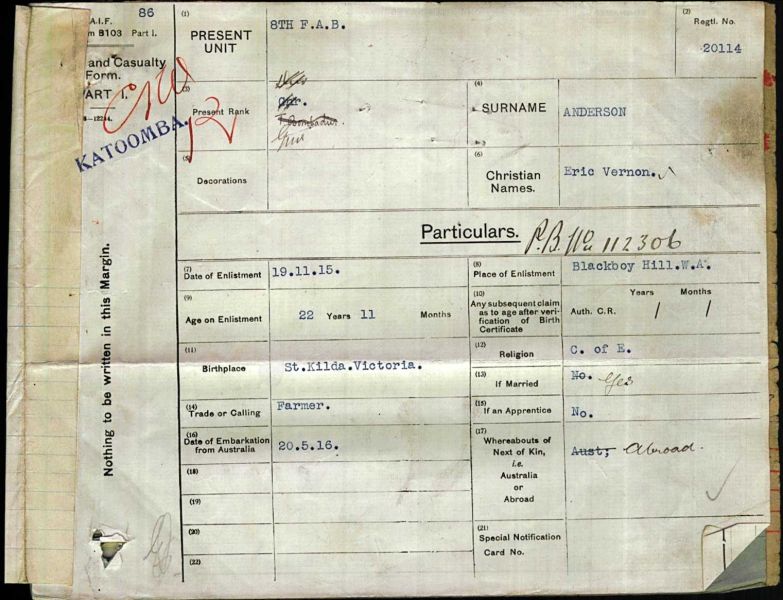 A.I.F. 86
m B103 Part I.
and Casualty
Form.
ART I.
8—12244.
KATOOMBA.
Nothing to be written in this Margin.
(1)
PRESENT UNIT 8TH F.A.B.
(2)
Regtl. No.
20114
(3)
Present Rank
Gnr.
T/Bombadier.
Gnr
(4)
SURNAME ANDERSON
(5)
Decorations
(6)
Christian Names. Eric Vernon.
Particulars. P.B. No 112306
(7)
Date of Enlistment 19.11.15.
(8)
Place of Enlistment Blackboy Hill.W.A.
(9)
Age on Enlistment 22 Years 11 Months
(10)
Any subsequent claim
as to age after veri-
fication of Birth
Certificate
Years Months
Auth. C.R. / /
(11)
Birthplace St.Kilda.Victoria.
(12)
Religion C. of E.
(13)
If Married No. Yes
(14)
Trade or Calling Farmer.
(15)
If an Apprentice No.
(16)
Date of Embarkation
from Australia 20.5.16.
(17)
Whereabouts of
Next of Kin,
i.e.
Australia
or
Abroad
Aust; Abroad.
(18)
(19)
(20)
(21)
Special Notification
Card No.
(22)